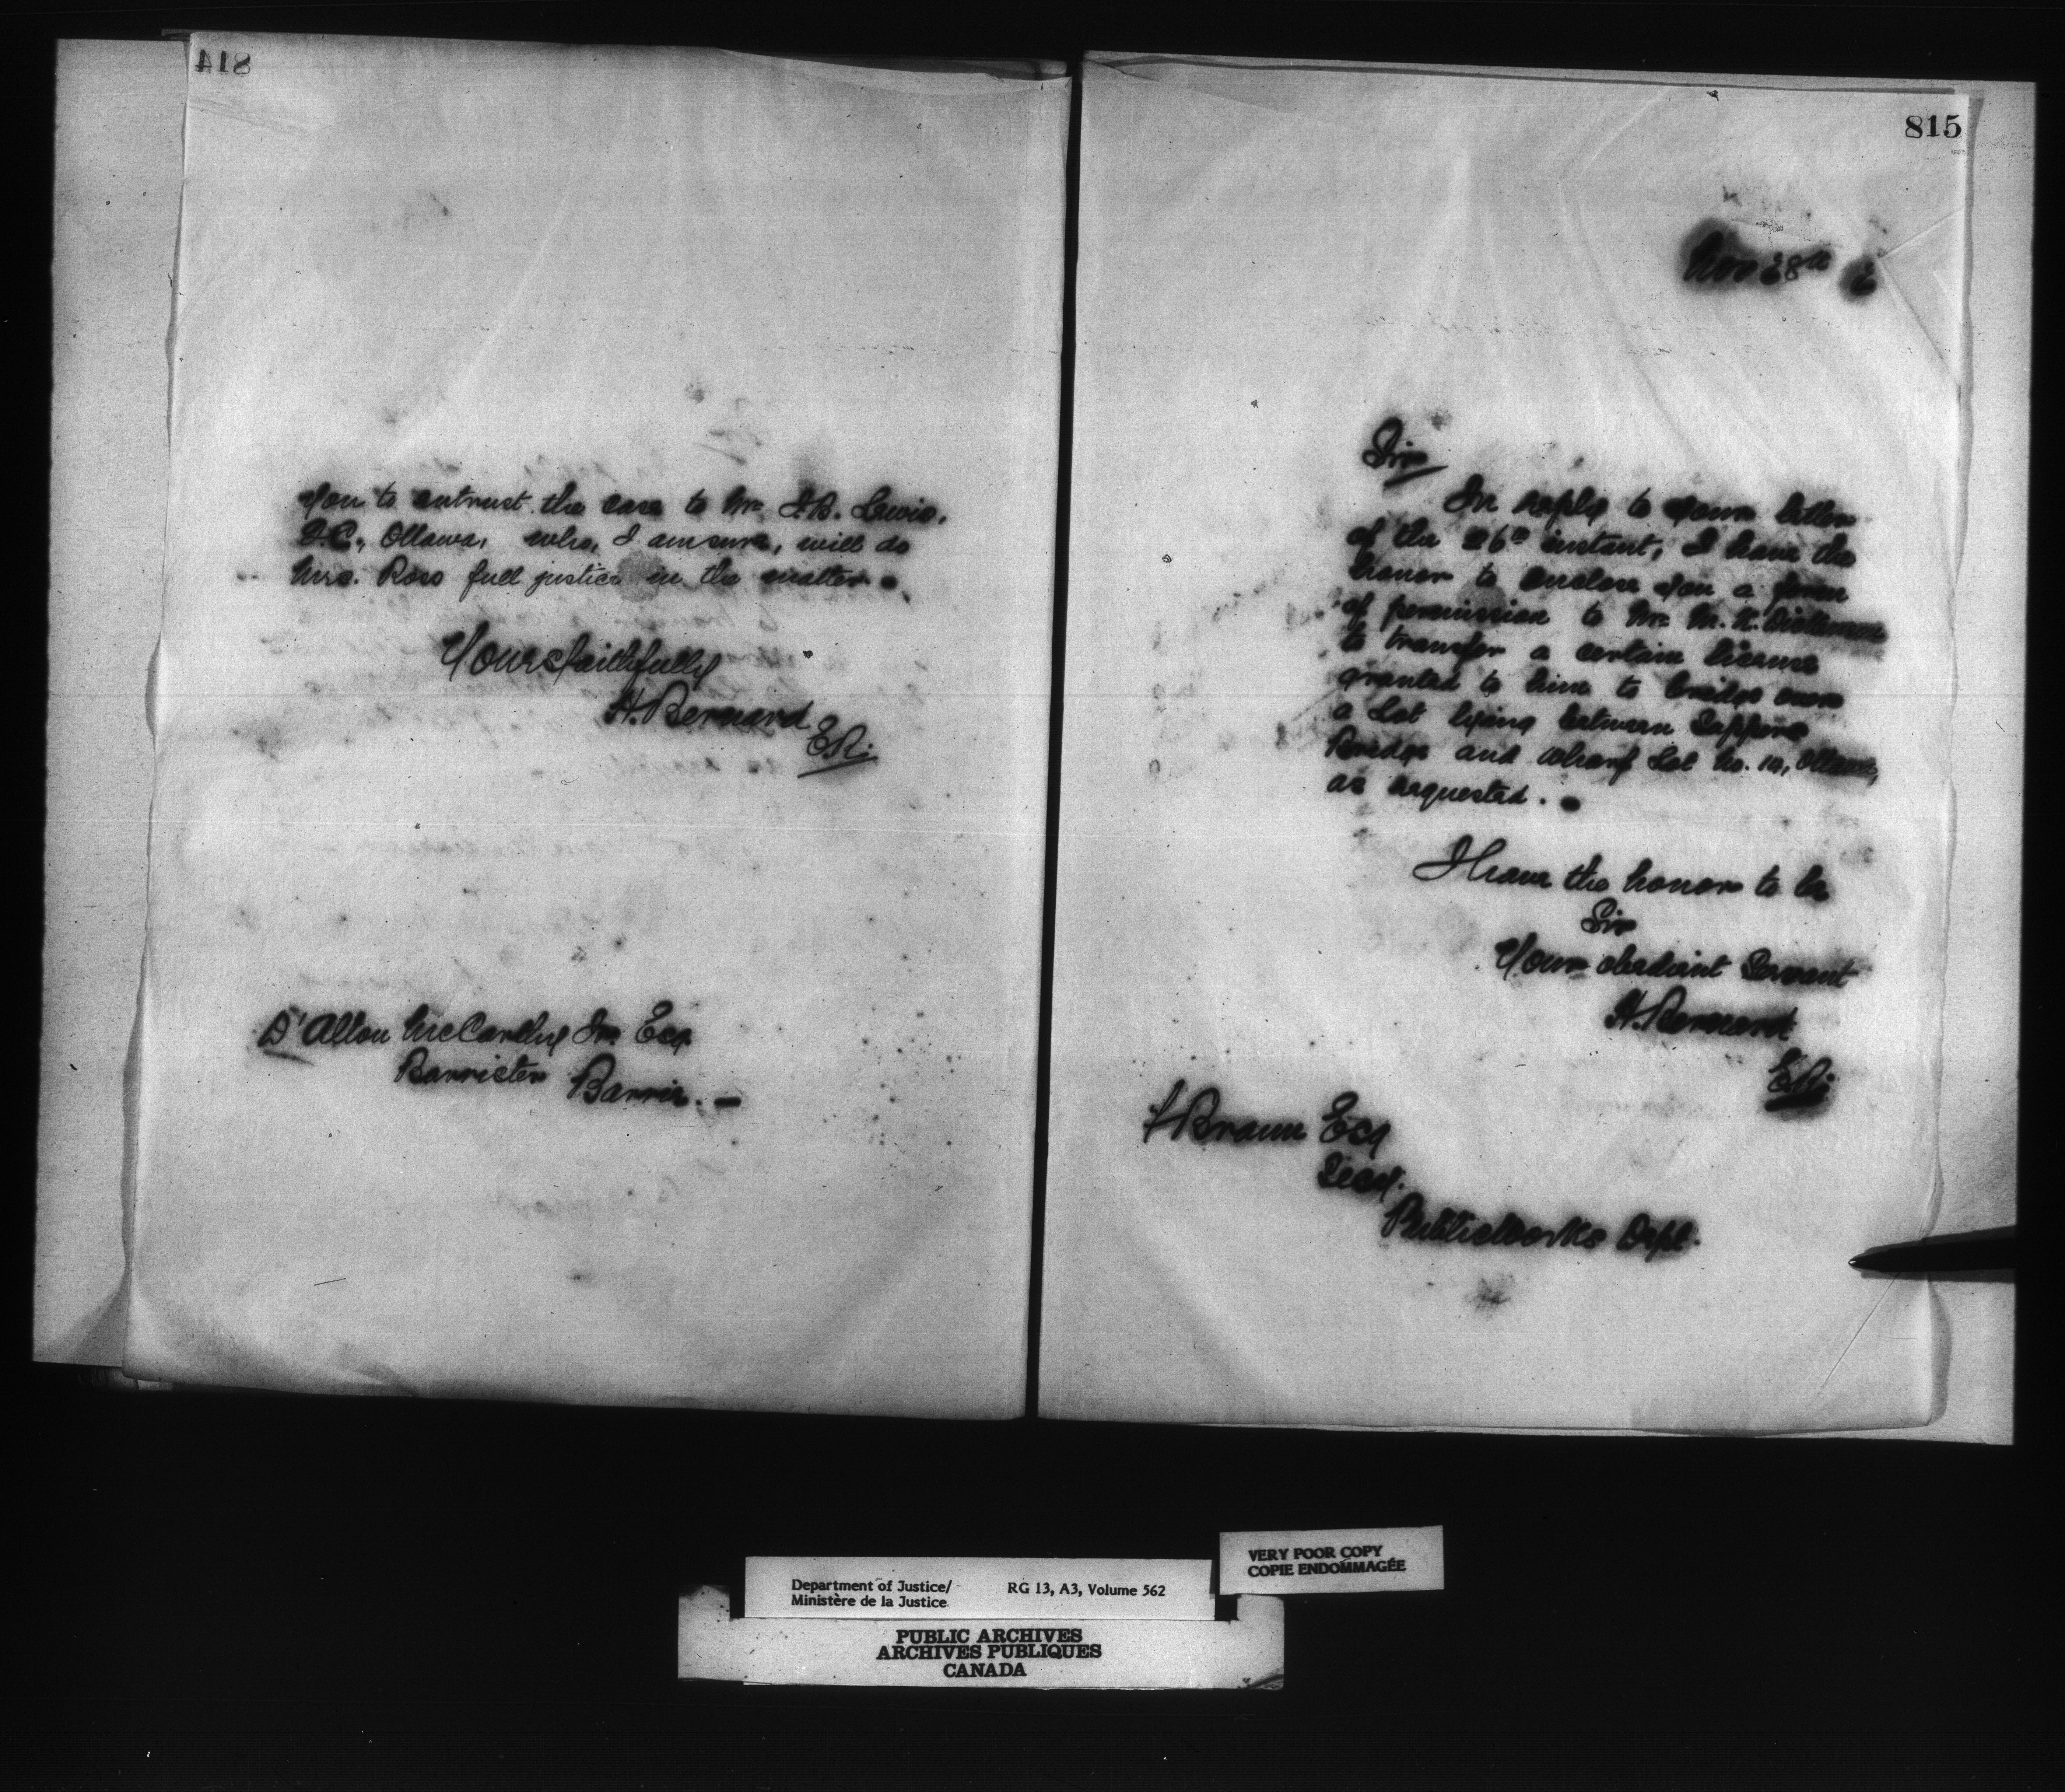 814
you to entrust the case to Mr J.B. Lewis,
Q.C., Ottawa, who, I am sure, will do
Mrs. Ross full justice in the matter.
Yours faithfully
H. Bernard
D'Alton McCarthy Jnr Esq
Barrister Barrie. —
815
Nov 28th 2
Sir
In reply to your letter
of the 26th instant, I have the
honor to enclose you a form
of permission to Mr M. K. Dickinson
to transfer a certain license
granted to him to bridge over
a Lot lying between Sappers
Bridge and Wharf Lot No. 10, Ottawa,
as requested. —
I have the honor to be
Sir
Your obedient Servant
H. Bernard
F Braun Esq
Secy.
Public Works Dept.
VERY POOR COPY
COPIE ENDOMMAGÉE
Department of Justice/ RG 13, A3, Volume 562
Ministère de la Justice
PUBLIC ARCHIVES
ARCHIVES PUBLIQUES
CANADA